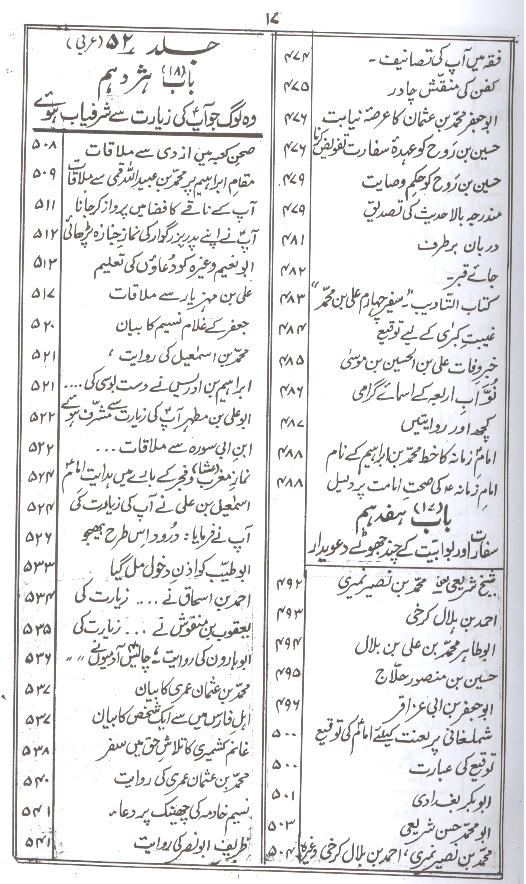 ۱۷
فقہ میں آپ کی تصانیف ۔ ۴۷۴
کفن کی منقش چادر ۴۷۵
ابو جعفر محمد بن عثمان کا عرضۂ نیابت ۴۷۶
حسین بن روح کو عہدۂ سفارت تفویض کرنا ۴۷۶
حسین بن روح کو حکمِ وصایت ۴۷۹
مندرجہ بالا حدیث کی تصدیق ۴۷۹
دربان برطرف ۴۸۱
جائے قبر ۔ ۴۸۲
کتاب التادیب ۔ سفیر چہارم علی بن محمد" ۴۸۳
غیبت کبریٰ کے لیے توقیع ۴۸۴
خبرِ وفات علی بن الحسین بن موسیٰ ۴۸۵
نوّابِ اربعہ کے اسمائے گرامی ۴۸۶
کچھ اور روایتیں ۴۸۷
امامِ زمانہ کا خط محمد بن ابراہیم کے نام ۴۸۸
امامِ زمانہ ؑ کی صحتِ امامت پر دلیل ۴۸۸
باب (۱۷) ہفدہم
سفارت اور نوابیت کے چند جھوٹے دعویدار
شیخ شریعی محمد بن نصیر نمیری ۴۹۲
احمد بن ہلال کرخی ۴۹۳
ابوطاہر محمد بن علی بن بلال ۴۹۴
حسین بن منصور حلّاج ۴۹۵
ابو جعفر بن ابی عزاقر ۴۹۶
شملغانی پر لعنت کیلئے امامؑ کی توقیع ۵۰۰
توقیع کی عبارت ۵۰۰
ابوبکر بغدادی ۵۰۱
ابو محمد حسن شریعی ۵۰۳
محمد بن نصیر نمیری، احمد بن ہلال کرخی وغیرہ ۵۰۴
جلد ۵۲ (عربی)
باب (۱۸) ہژدہم
وہ لوگ جو آپؑ کی زیارت سے شرفیاب ہوئے
صحن کعبہ میں ازدی سے ملاقات ۵۰۸
مقام ابراہیم پر محمد بن عبید اللہ قمی سے ملاقات ۵۰۹
آپ کے ناقے کا فضا میں پرواز کر جانا ۵۱۱
آپؑ نے اپنے پدر بزرگوار کی نماز جنازہ پڑھائی ۵۱۲
ابو نعیم وغیرہ کو دعاؤں کی تعلیم ۵۱۳
علی بن مہزیار سے ملاقات ۵۱۷
جعفر کے غلام نسیم کا بیان ۵۲۰
محمد بن اسمٰعیل کی روایت، ۵۲۱
ابراہیم بن ادریس نے دست بوسی کی.... ۵۲۱
ابو علی بن مطہر آپؑ کی زیارت سے مشرف ہوئے ۵۲۲
ابن ابی سورہ سے ملاقات ... ۵۲۲
نماز مغرب (عشا) و فجر کے بارے میں ہدایت امامؑ ۵۲۴
اسمٰعیل بن علی نے آپ کی زیارت کی ۵۲۴
آپ نے فرمایا: درود اس طرح بھیجو ۵۲۶
ابو طیب کو اذنِ دخول مل گیا ۵۳۳
احمد بن اسحاق نے .... زیارت کی ۵۳۴
یعقوب بن منقوش نے ... زیارت کی ۵۳۵
ابو ہارون کی روایت؛ چالیس آدمیوں نے " " ۵۳۶
محمد بن عثمان عمری کا بیان ۵۳۷
اہل فارس میں سے ایک شخص کا بیان ۵۳۷
غانم کشمیری کا تلاش حق میں سفر ۵۳۸
محمد بن عثمان عمری کی روایت ۵۴۰
نسیم خادمہ کی چھینک پر دعاء ۵۴۱
طریف ابو نصر کی روایت ۵۴۱